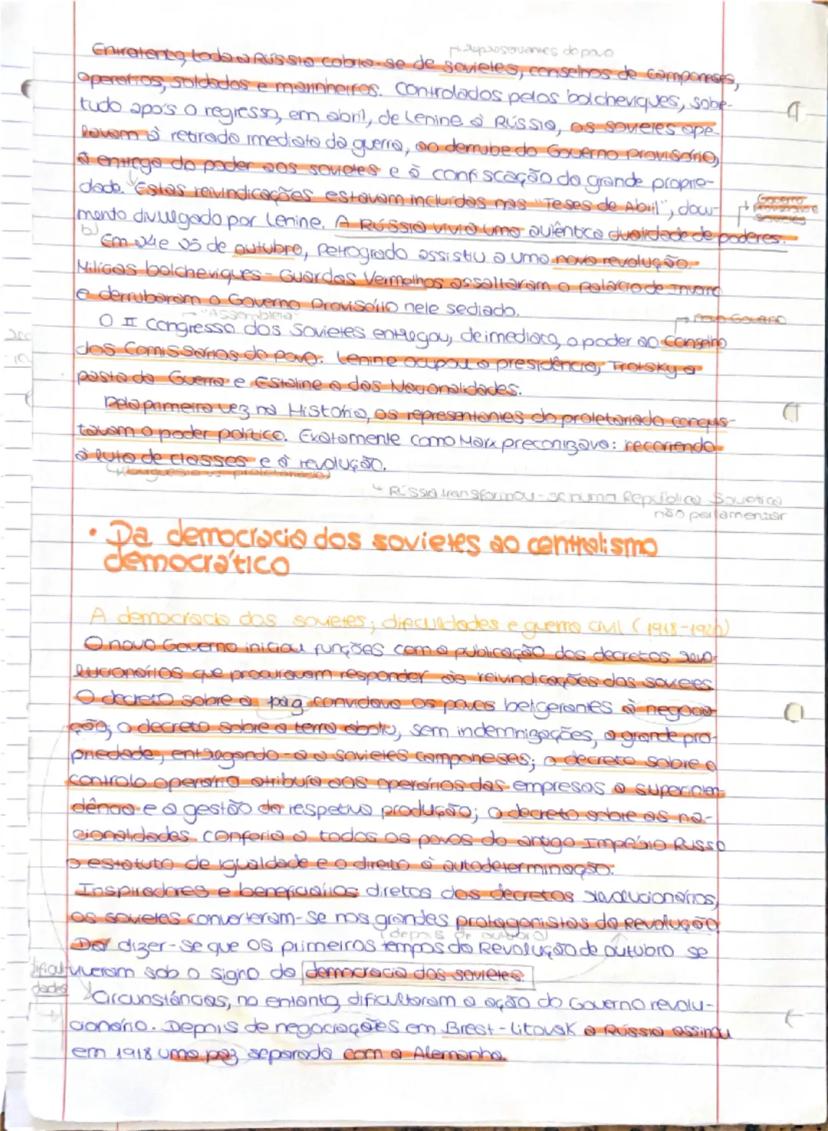 representantes do povo
Entretanto, toda a Rússia cobriu-se de sovietes, conselhos de camponeses,
operários, soldados e marinheiros. Controlados pelos bolcheviques, sobre-
tudo após o regresso, em abril, de Lenine à Rússia, os sovietes ape-
lavam à retirada imediata da guerra, ao derrube do Governo provisório,
à entrega do poder aos sovietes e à confiscação da grande proprie-
dade. Estas reivindicações estavam incluídas nas "Teses de Abril", docu-
mento divulgado por Lenine. A Rússia vivia uma autêntica dualidade de poderes.
Governo
b) Em 24 e 25 de outubro, Petrogrado assistiu a uma nova revolução.
Milícias bolcheviques - Guardas Vermelhos assaltaram o Palácio de Inverno
e derrubaram o Governo Provisório nele sediado.
"Assembleia"
Novo Governo
O II Congresso dos Sovietes entregou, de imediato, o poder ao Conselho
dos Comissários do Povo. Lenine ocupou a presidência, Trotsky a
pasta da Guerra e Estaline a das Nacionalidades.
Pela primeira vez na História, os representantes do proletariado conquis-
tavam o poder político. Exatamente como Marx preconizava: recorrendo
à luta de classes e à revolução.
burguesia vs proletariado
↳ Rússia transformou-se numa República Soviética
não parlamentar
• Da democracia dos sovietes ao centralismo
democrático
A democracia dos sovietes; dificuldades e guerra civil (1918-1920)
O novo Governo iniciou funções com a publicação dos decretos revo-
lucionários que procuravam responder às reivindicações dos sovietes
O decreto sobre a paz convidava os povos beligerantes à negocia-
ção, o decreto sobre a terra aboliu, sem indemnizações, a grande pro-
priedade, entregando-a a sovietes camponeses; o decreto sobre o
controlo operário atribuía aos operários das empresas a superinten
dência e a gestão da respetiva produção; o decreto sobre as na-
cionalidades conferia a todos os povos do antigo Império Russo
o estatuto de igualdade e o direito à autodeterminação.
Inspiradores e beneficiários diretos dos decretos revolucionários,
os sovietes converteram-se nos grandes protagonistas da Revolução
(depois de outubro)
Daí dizer-se que os primeiros tempos da Revolução de outubro se
viveram sob o signo da democracia dos sovietes.
dificul
dades
Circunstâncias, no entanto, dificultaram a ação do Governo revolu-
cionário. Depois de negociações em Brest-Litovsk a Rússia assinou
em 1918 uma paz separada com a Alemanha.